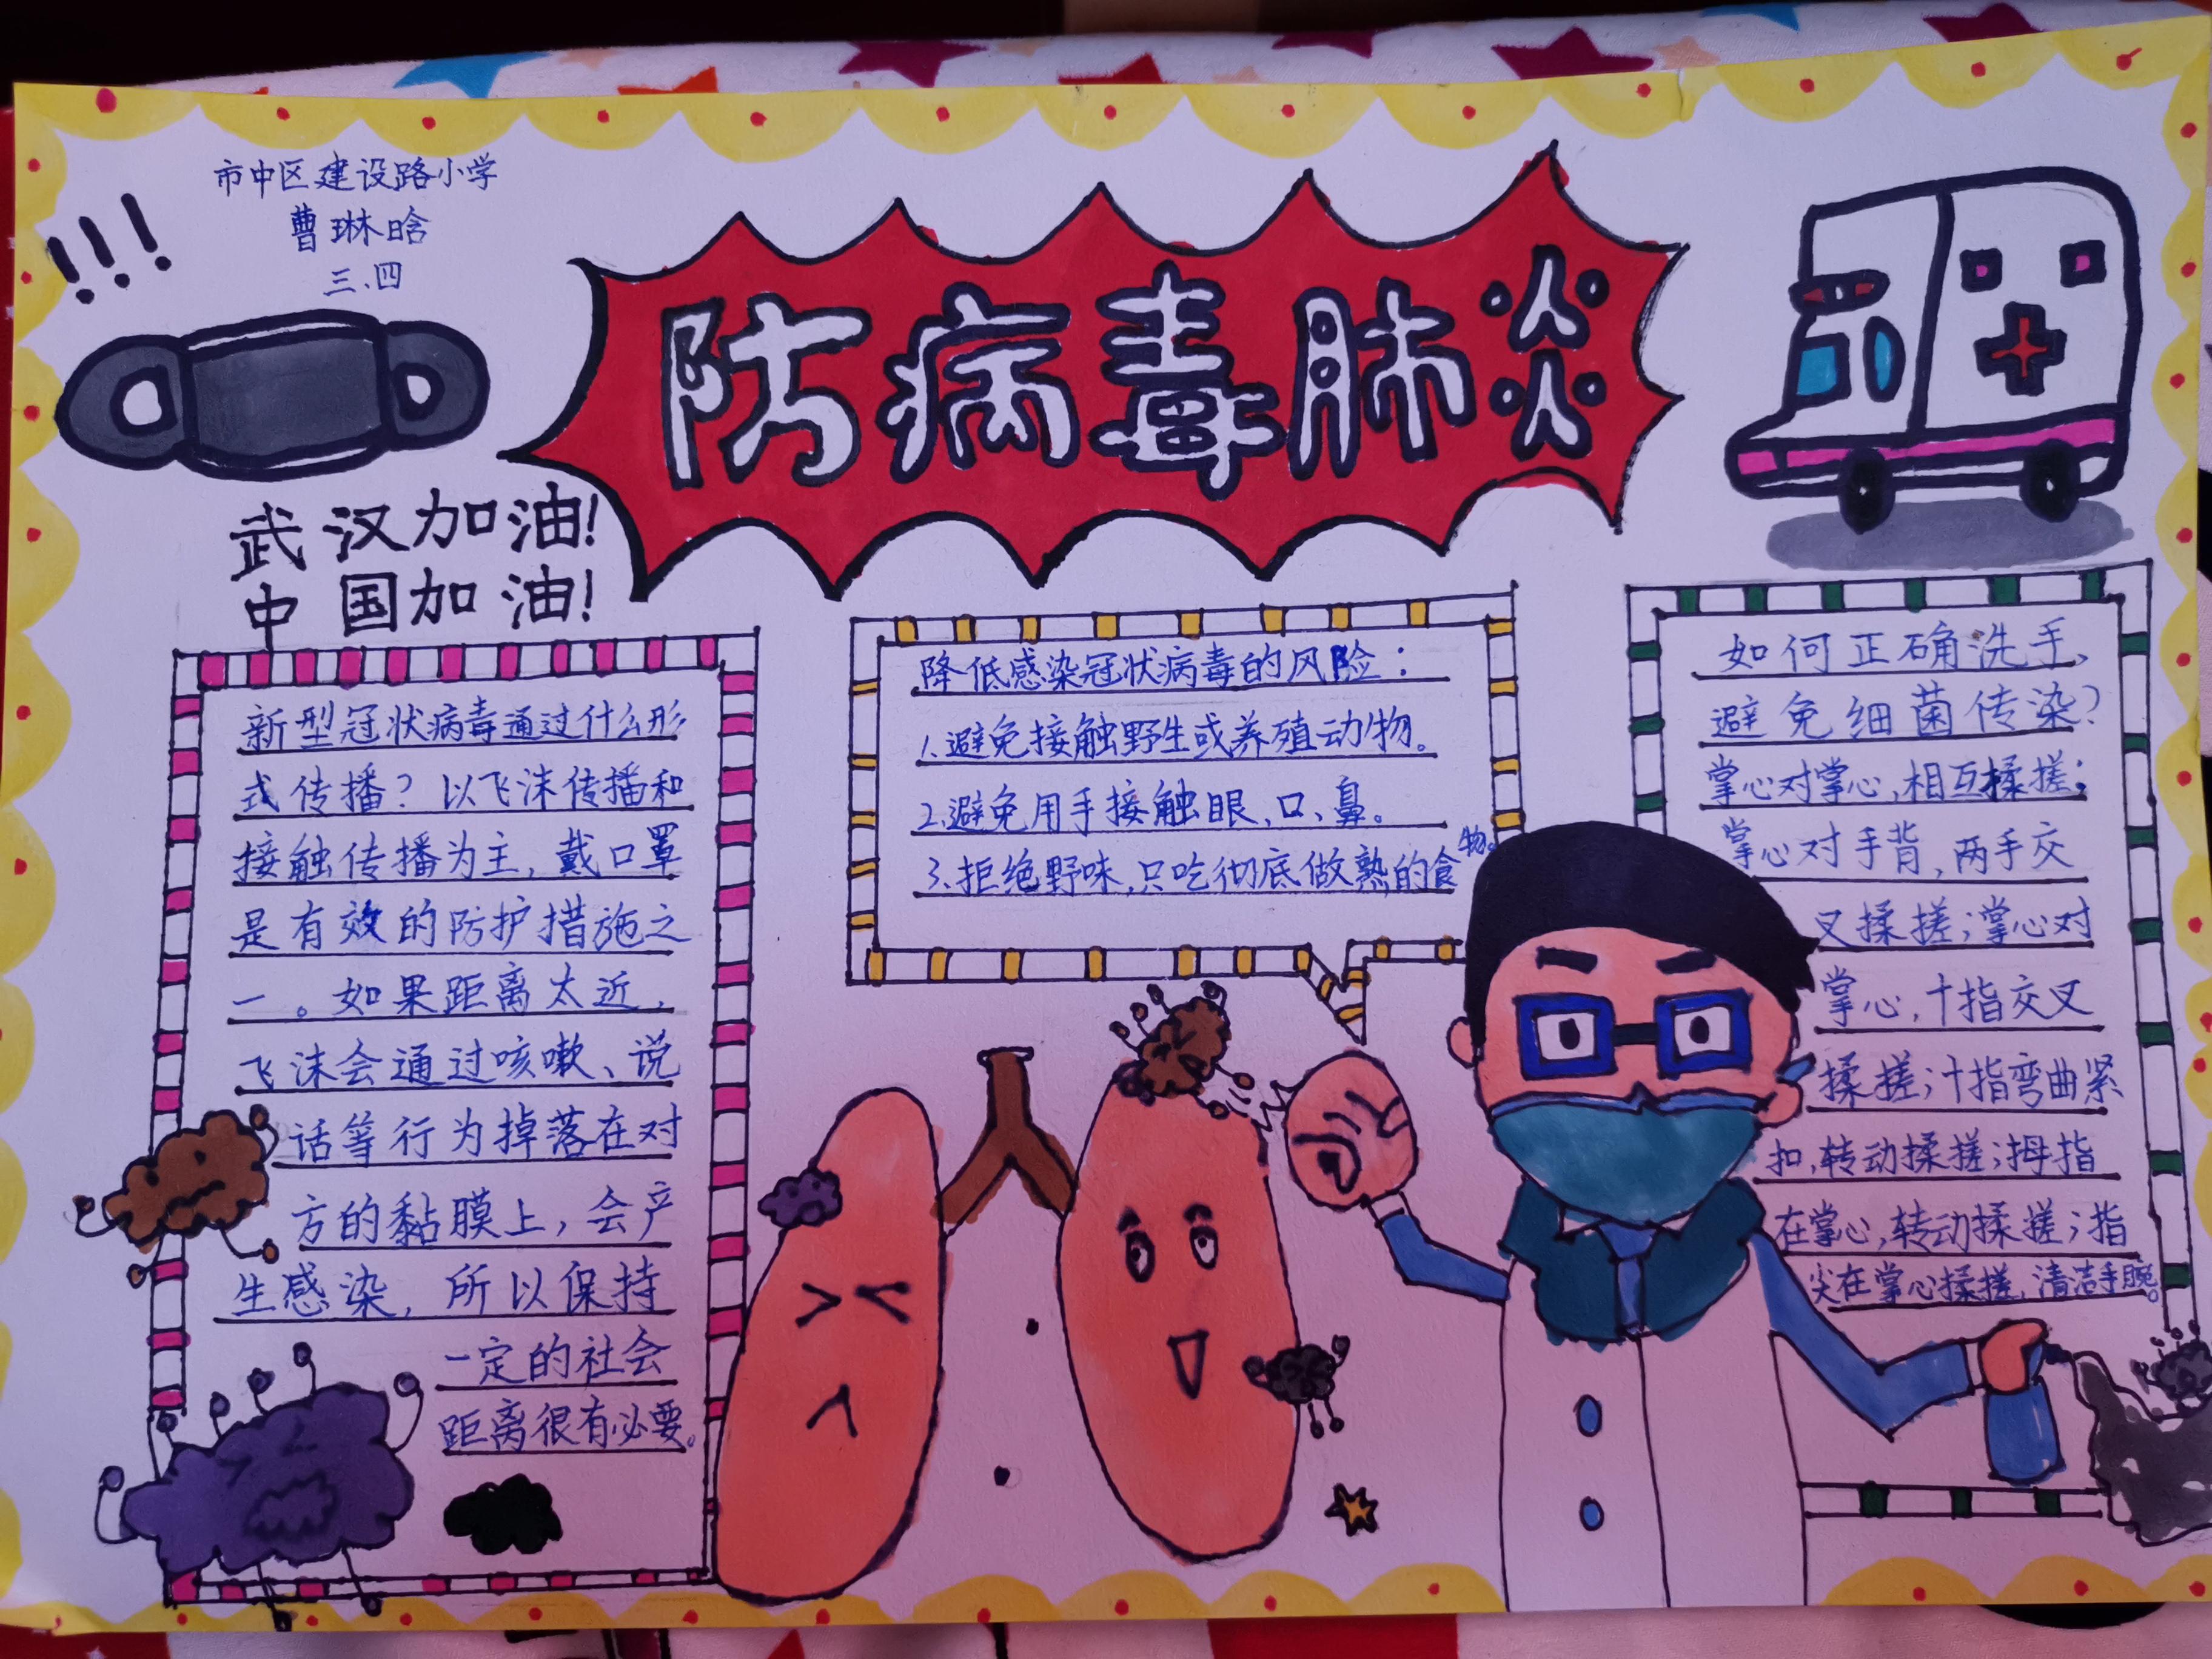 市中区建设路小学
曹琳晗
三、四
!!!
防病毒肺炎
武汉加油!
中国加油!
新型冠状病毒通过什么形
式传播?以飞沫传播和
接触传播为主,戴口罩
是有效的防护措施之
一。如果距离太近,
飞沫会通过咳嗽、说
话等行为掉落在对
方的黏膜上,会产
生感染,所以保持
一定的社会
距离很有必要。
降低感染冠状病毒的风险:
1.避免接触野生或养殖动物。
2.避免用手接触眼、口、鼻。
3.拒绝野味,只吃彻底做熟的食物。
如何正确洗手、
避免细菌传染?
掌心对掌心,相互揉搓;
掌心对手背,两手交
叉揉搓;掌心对
掌心,十指交叉
揉搓;十指弯曲紧
扣,转动揉搓;拇指
在掌心,转动揉搓;指
尖在掌心揉搓,清洁手腕。